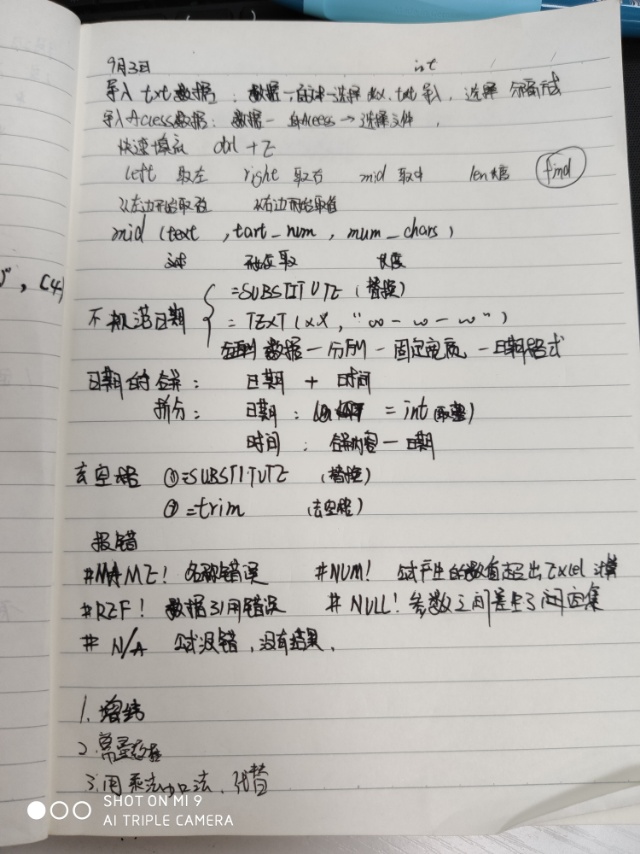 9月3日 int
导入txt数据: 数据-自文本-选择 txt导入, 选择 分隔方式
导入Access数据: 数据-自Access→选择文件,
快速填充 ctrl + E
left 取左 right 取右 mid 取中 len 长度 find
从左边开始取值 从右边开始取值
", C4)
mid (text , tart_num, mum_chars)
文本 开始取 长度
不规范日期 =SUBSTITUTE (替换)
= TEXT (XX, "00-00-00")
数据-分列-固定宽度-日期格式
日期的合并: 日期 + 时间
拆分: 日期: = int (取整)
时间: 合并内容-日期
去空格 ①=SUBSTITUTE (替换)
②=trim (去空格)
报错
#NAME! 名称错误 #NUM! 公式产生的数值超出Excel 计算
#REF! 数据引用错误 #NULL! 参数之间差生了间空集
# N/A 公式没错,没有结果.
1.
2.
3.用乘法加法,代替
SHOT ON MI 9
AI TRIPLE CAMERA